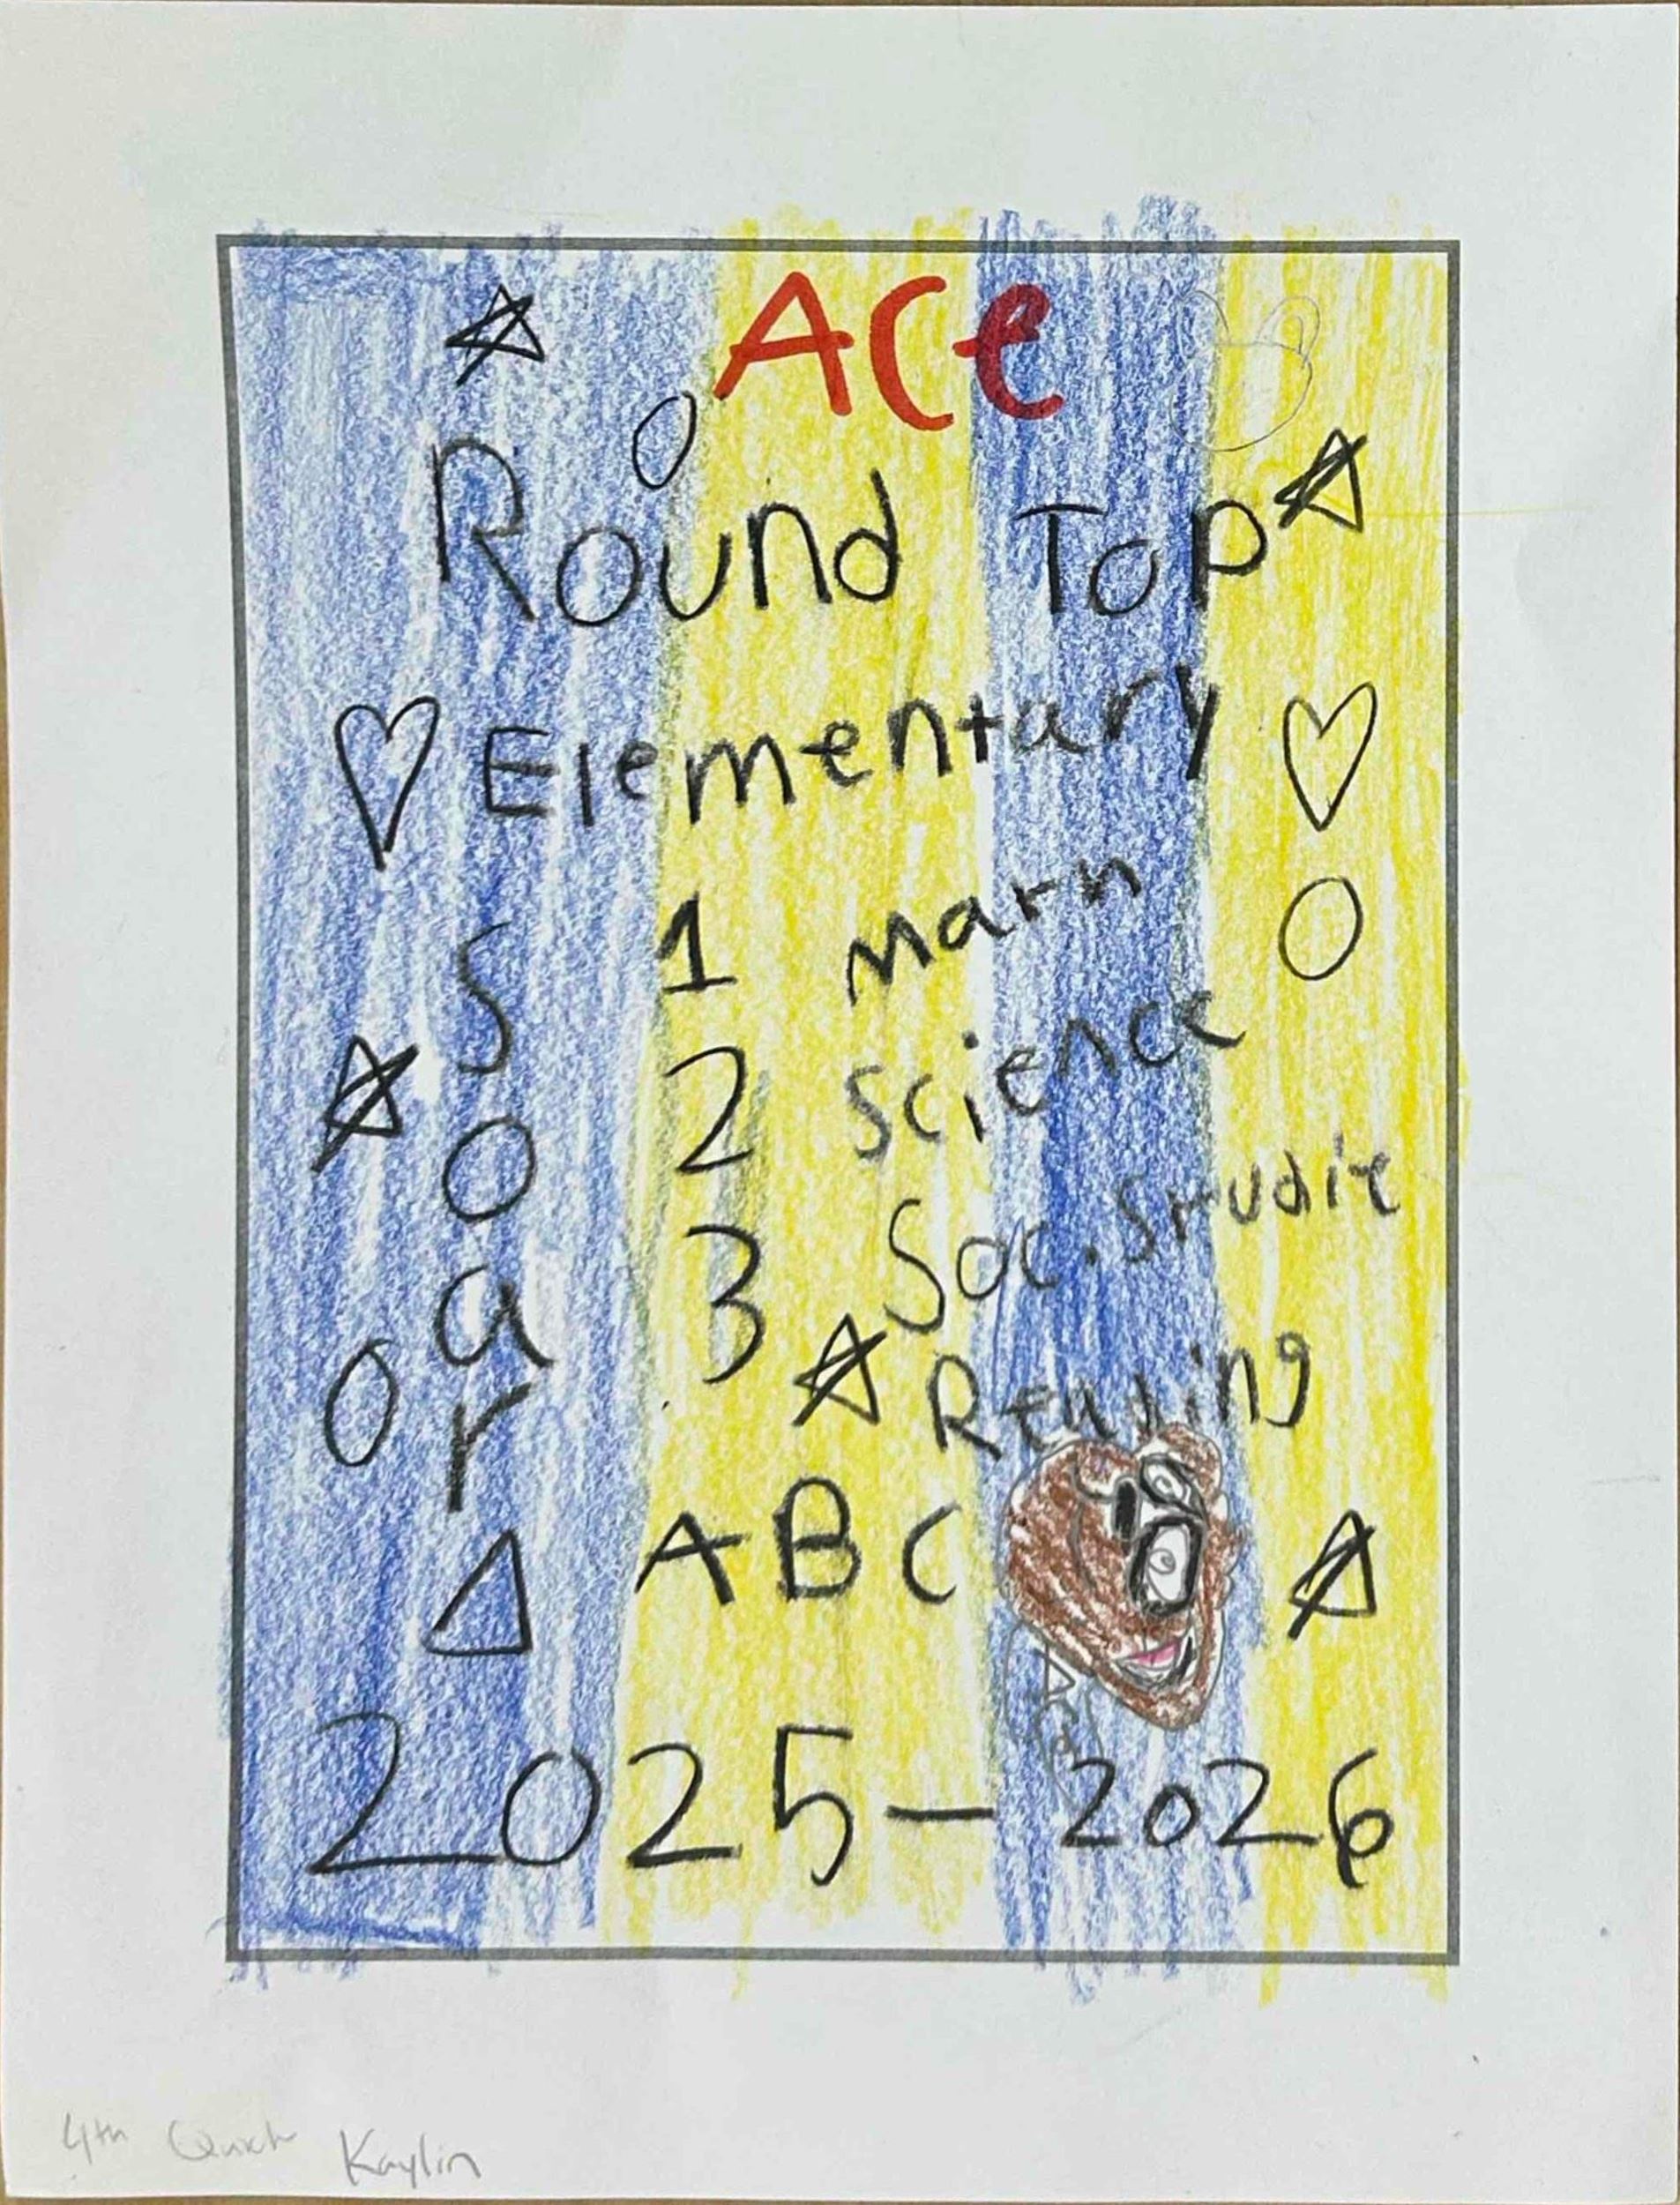 ACe
Round Top
Elementary
Soar
1 Math
2 Science
3 Soc. Studie
Reading
A B C
2025-2026
4th
Kaylin